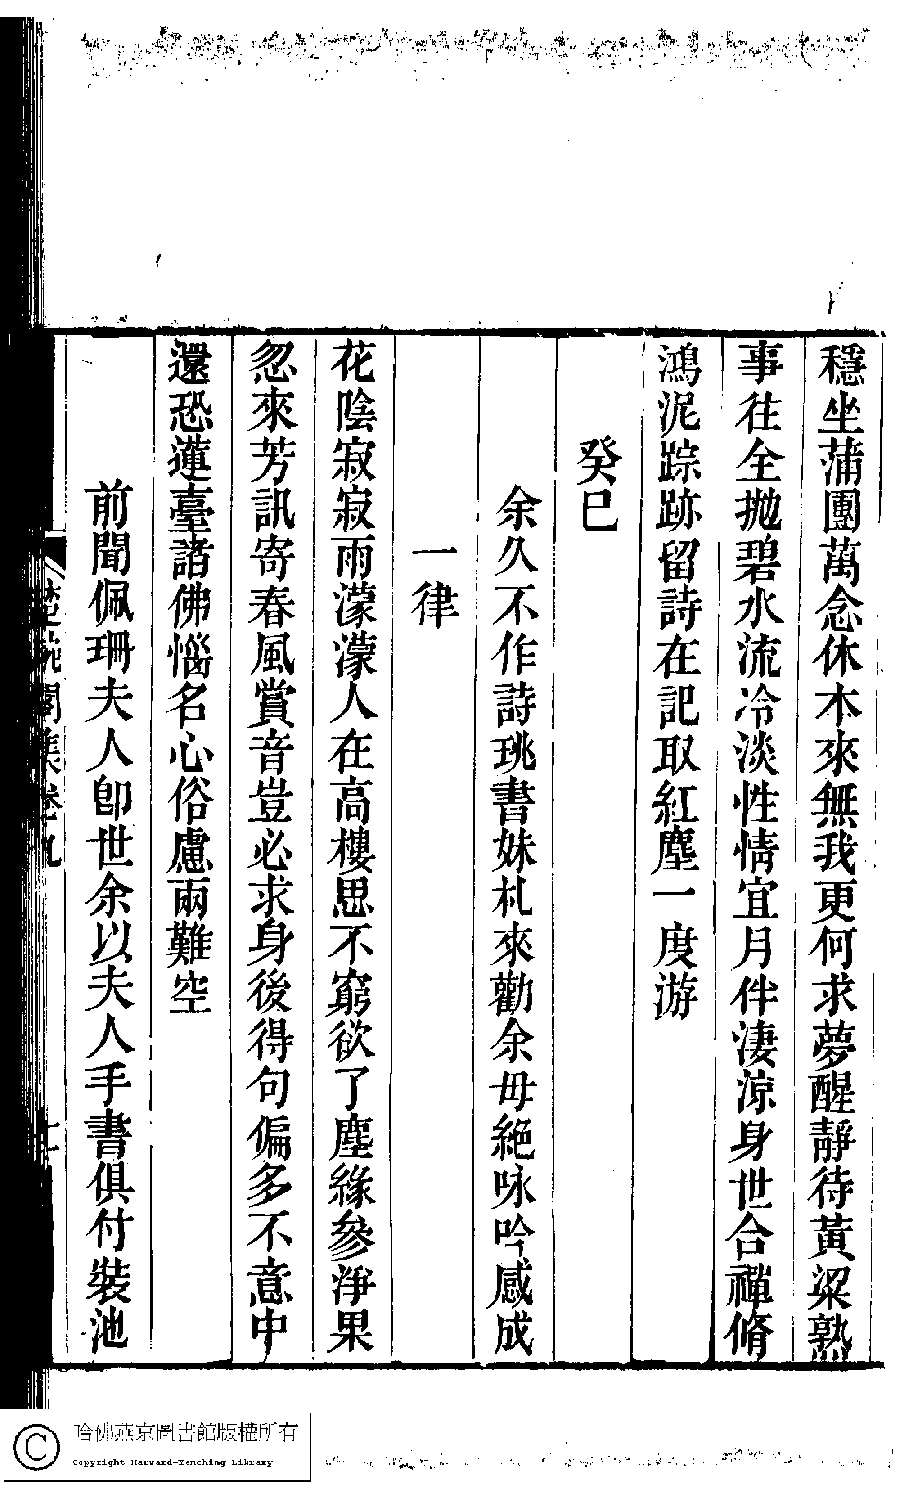 穩坐蒲團萬念休木來無我更何求夢醒靜待黃粱熟
事往全拋碧水流冷淡性情宜月伴淒涼身世合禪脩
鴻泥踪跡留詩在記取紅塵一度游
癸巳
余久不作詩珧書妹札來勸余毋絕咏吟感成
一律
花陰寂寂雨濛濛人在高樓思不窮欲了塵緣參淨果
忽來芳訊寄春風賞音豈必求身後得句偏多不意中
還恐蓮臺諸佛惱名心俗慮兩難空
前聞佩珊夫人卽世余以夫人手書俱付裝池
閣集卷九
哈佛燕京圖書館版權所有
Copyright Harvard-Yenching Library